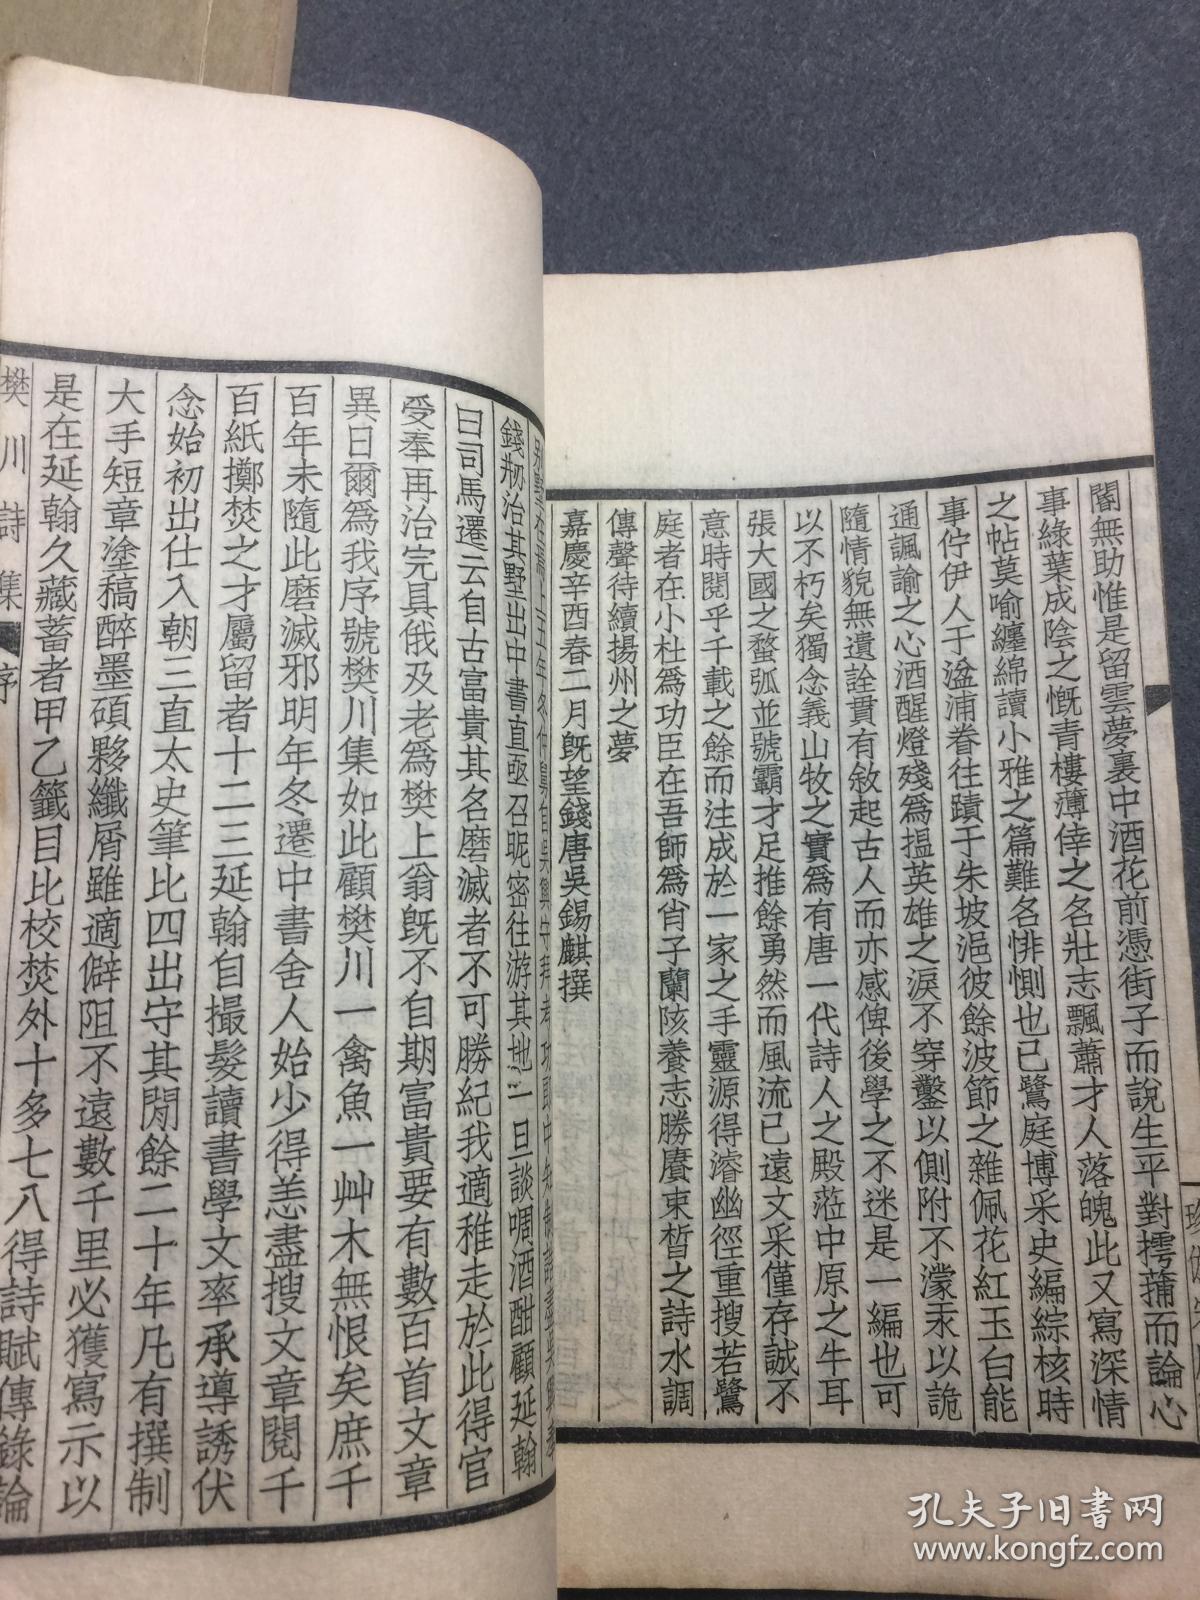 闇無助惟是留雲夢裏中酒花前憑街子而說生平對摴蒱而論心
事綠葉成陰之慨青樓薄倖之名壯志飄蕭才人落魄此又寫深情
之帖莫喻纏綿讀小雅之篇難名悱惻也已鷺庭博采史編綜核時
事佇伊人于湓浦眷往蹟于朱坡浥彼餘波節之雜佩花紅玉白能
通諷諭之心酒醒燈殘為搵英雄之淚不穿鑿以側附不濛汞以詭
隨情貌無遺詮貫有敘起古人而亦感俾後學之不迷是一編也可
以不朽矣獨念義山牧之實為有唐一代詩人之殿蒞中原之牛耳
張大國之蝥弧並號霸才足推餘勇然而風流已遠文采僅存誠不
意時閱乎千載之餘而注成於一家之手靈源得濬幽徑重搜若鷺
庭者在小杜為功臣在吾師為肖子蘭陔養志勝賡束晳之詩水調
傳聲待續揚州之夢
嘉慶辛酉春二月旣望錢唐吳錫麒撰
錢刱治其墅出中書直亟召昵密往游其地一旦談啁酒酣顧延翰
曰司馬遷云自古富貴其名磨滅者不可勝紀我適稚走於此得官
受奉再治完具俄及老為樊上翁旣不自期富貴要有數百首文章
異日爾為我序號樊川集如此顧樊川一禽魚一艸木無恨矣庶千
百年未隨此磨滅邪明年冬遷中書舍人始少得恙盡搜文章閱千
百紙擲焚之才屬留者十二三延翰自撮髮讀書學文率承導誘伏
念始初出仕入朝三直太史筆比四出守其閒餘二十年凡有撰制
大手短章塗稿醉墨碩夥纖屑雖適僻阻不遠數千里必獲寫示以
是在延翰久藏蓄者甲乙籤目比校焚外十多七八得詩賦傳錄論
樊川詩集 序
孔夫子旧书网
www.kongfz.com